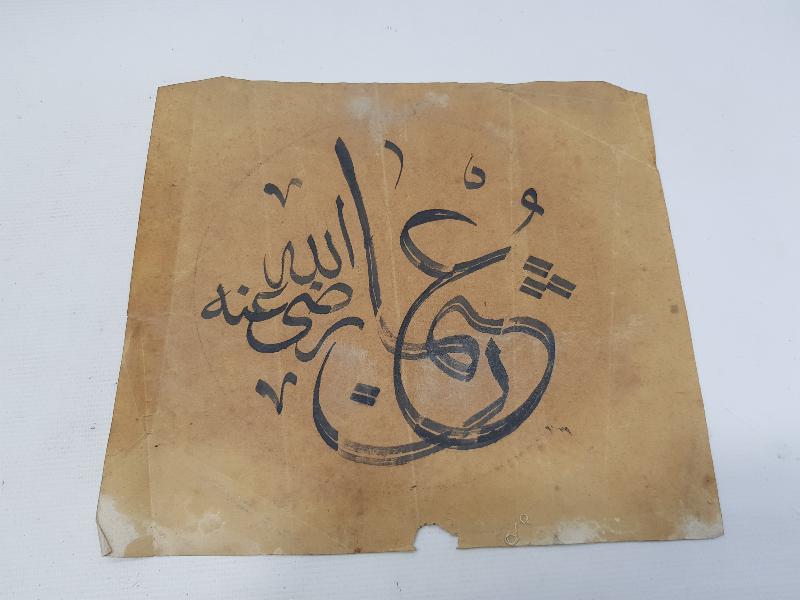 عثمان
رضى الله عنه